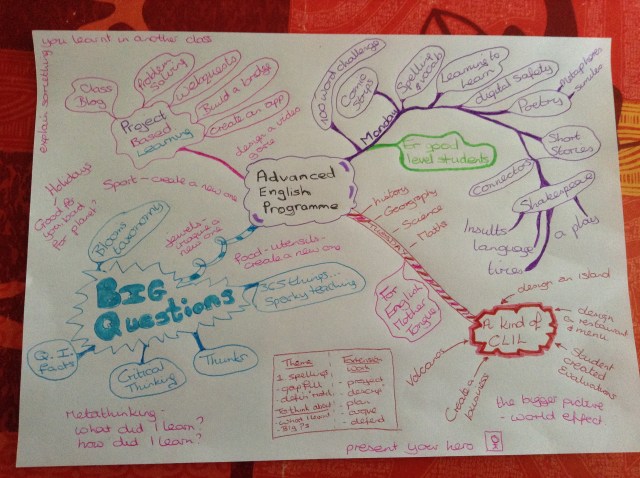 you learnt in another class
explain something
Class
Blog
Problem
Solving
Webquests
Build a bridge
Create an app
design a video
game
Project
Based
Learning
100 word challenge
Comic
Strips
Monday
Spelling
& vocab
Learning to
Learn
digital Safety
Poetry
metaphores
similes
Short
Stories
Connectors
Shakespeare
Insults
language
a play
For good
level students
Advanced
English
Programme
Holidays
Good for
you bad
for planet?
Sport - create a new one
Jewels -
create a
new one
Food - utensils -
create a new one
Blooms taxonomy
BIG
Questions
365 things...
Sparky teaching
Q.I.
Facts
Critical
Thinking
Thunks
- history
- Geography
- Science
- Maths
For
English
Mother
Tongue
A kind of
CLIL
design an island
design
a restaurant
& menu
Student
created
Evaluations
Volcanoes
Create a
business
the bigger picture
- world effect
Theme
1 spellings
- gap fill
To think about
- what I learnt
- Big ?s
work
- project
- describe
- plan
- argue
- defend
Metathinking -
what did I learn?
how did I learn?
present your hero